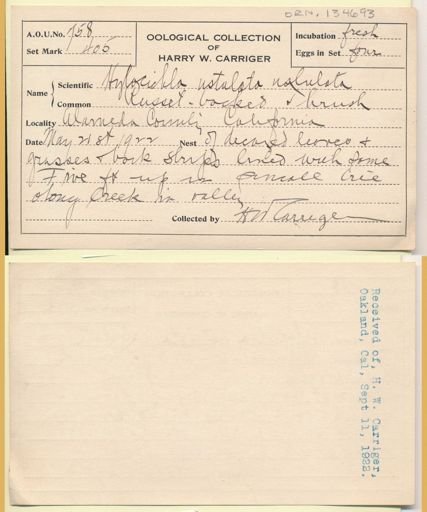 ORN. 134693
A.O.U. No. 758
Set Mark 405
OOLOGICAL COLLECTION
OF
HARRY W. CARRIGER
Incubation fresh
Eggs in Set four
Name { Scientific Hylocichla ustulata ustulata
Common Russet-backed Thrush
Locality Alameda County California
Date May 21st 1922 Nest of decayed leaves &
grasses & bark strips lined with same
Five ft up in small tree
along creek in valley
Collected by H W Carriger
Received of, H. W. Carriger,
Oakland, Cal, Sept 11, 1922.